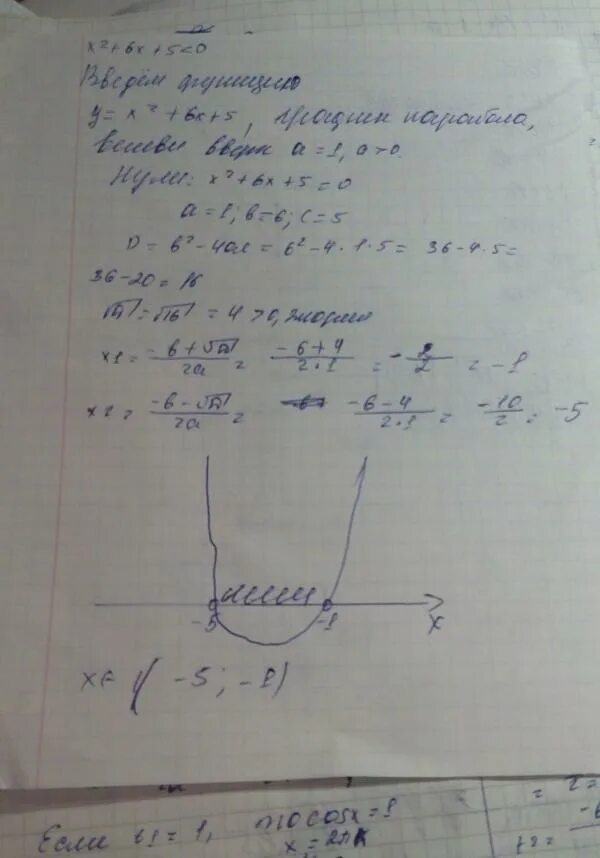 x²+6x+5<0
Введём функцию
y= x²+6x+5, график парабола,
ветви вверх a=1, a>0.
Нули: x²+6x+5=0
a=1; b=6; c=5
D= b²-4ac= 6²-4·1·5= 36-4·5=
36-20=16
√D=√16 = 4 >0, 2корня
x1= -b+√D/2a= -6+4/2·1 = -2/2 = -1
x2= -b-√D/2a= -6-4/2·1= -10/2= -5
-5 -1 x
x∈ (-5; -1)
Если t1=1, то cosx=1
x=2πk